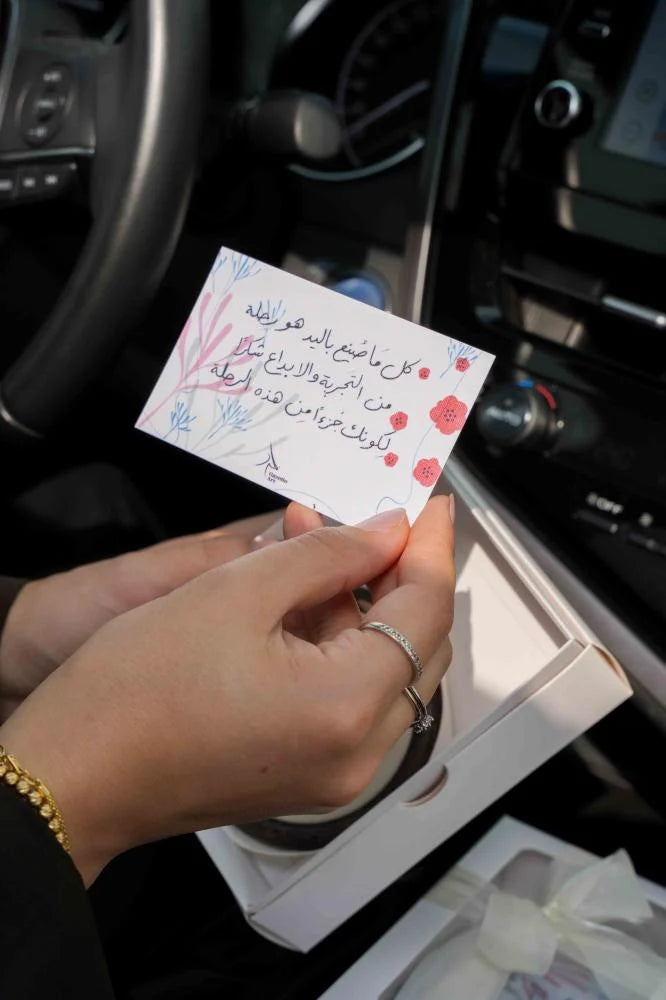 كل مَا صُنِع باليد هو رحلة
من التَجربة والابداع شكرًا
لِكونك جُزءًا مِن هذه الرحلة
OFF